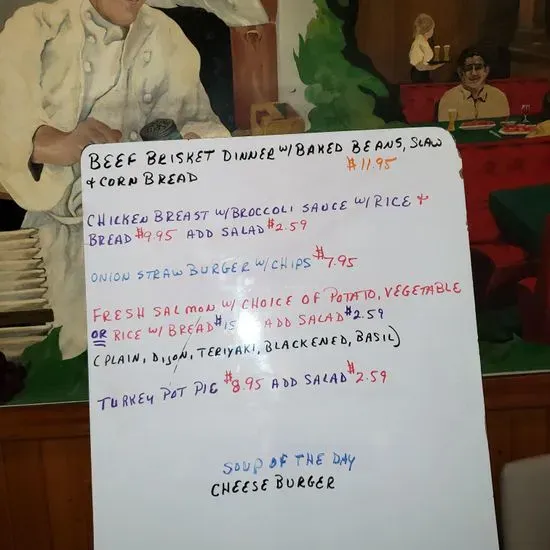 BEEF BRISKET DINNER W/BAKED BEANS, SLAW
& CORN BREAD $11.95
CHICKEN BREAST W/BROCCOLI SAUCE W/RICE &
BREAD $9.95 ADD SALAD $2.59
ONION STRAW BURGER W/CHIPS $7.95
FRESH SALMON W/ CHOICE OF POTATO, VEGETABLE
OR RICE W/ BREAD $15 ADD SALAD $2.59
(PLAIN, DIJON, TERIYAKI, BLACKENED, BASIL)
TURKEY POT PIE $8.95 ADD SALAD $2.59
SOUP OF THE DAY
CHEESE BURGER